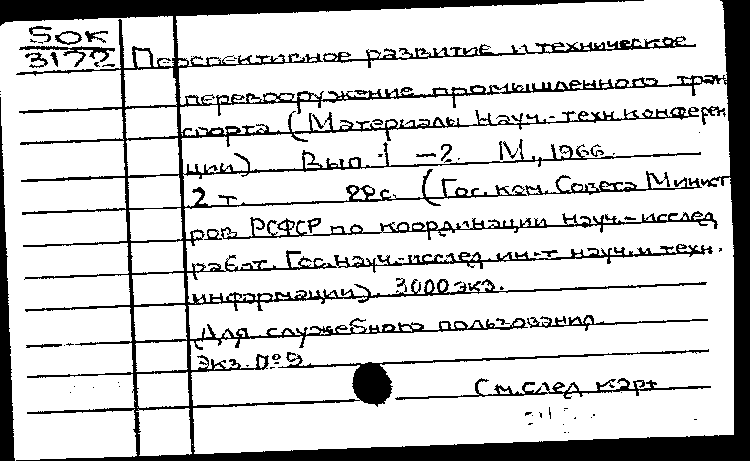 50к
3172 Перспективное развитие и техническое
перевооружение промышленного тран
спорта. (Материалы науч.-техн. конферен
ции). Вып. 1 – 2. М., 1966.
2 т. 22 с. (Гос. ком. Совета Минист
ров РСФСР по координации науч.-исслед
работ. Гос. науч.-исслед. ин-т науч. и техн.
информации). 3000 экз.
Для служебного пользования.
Экз. №9.
См. след карт